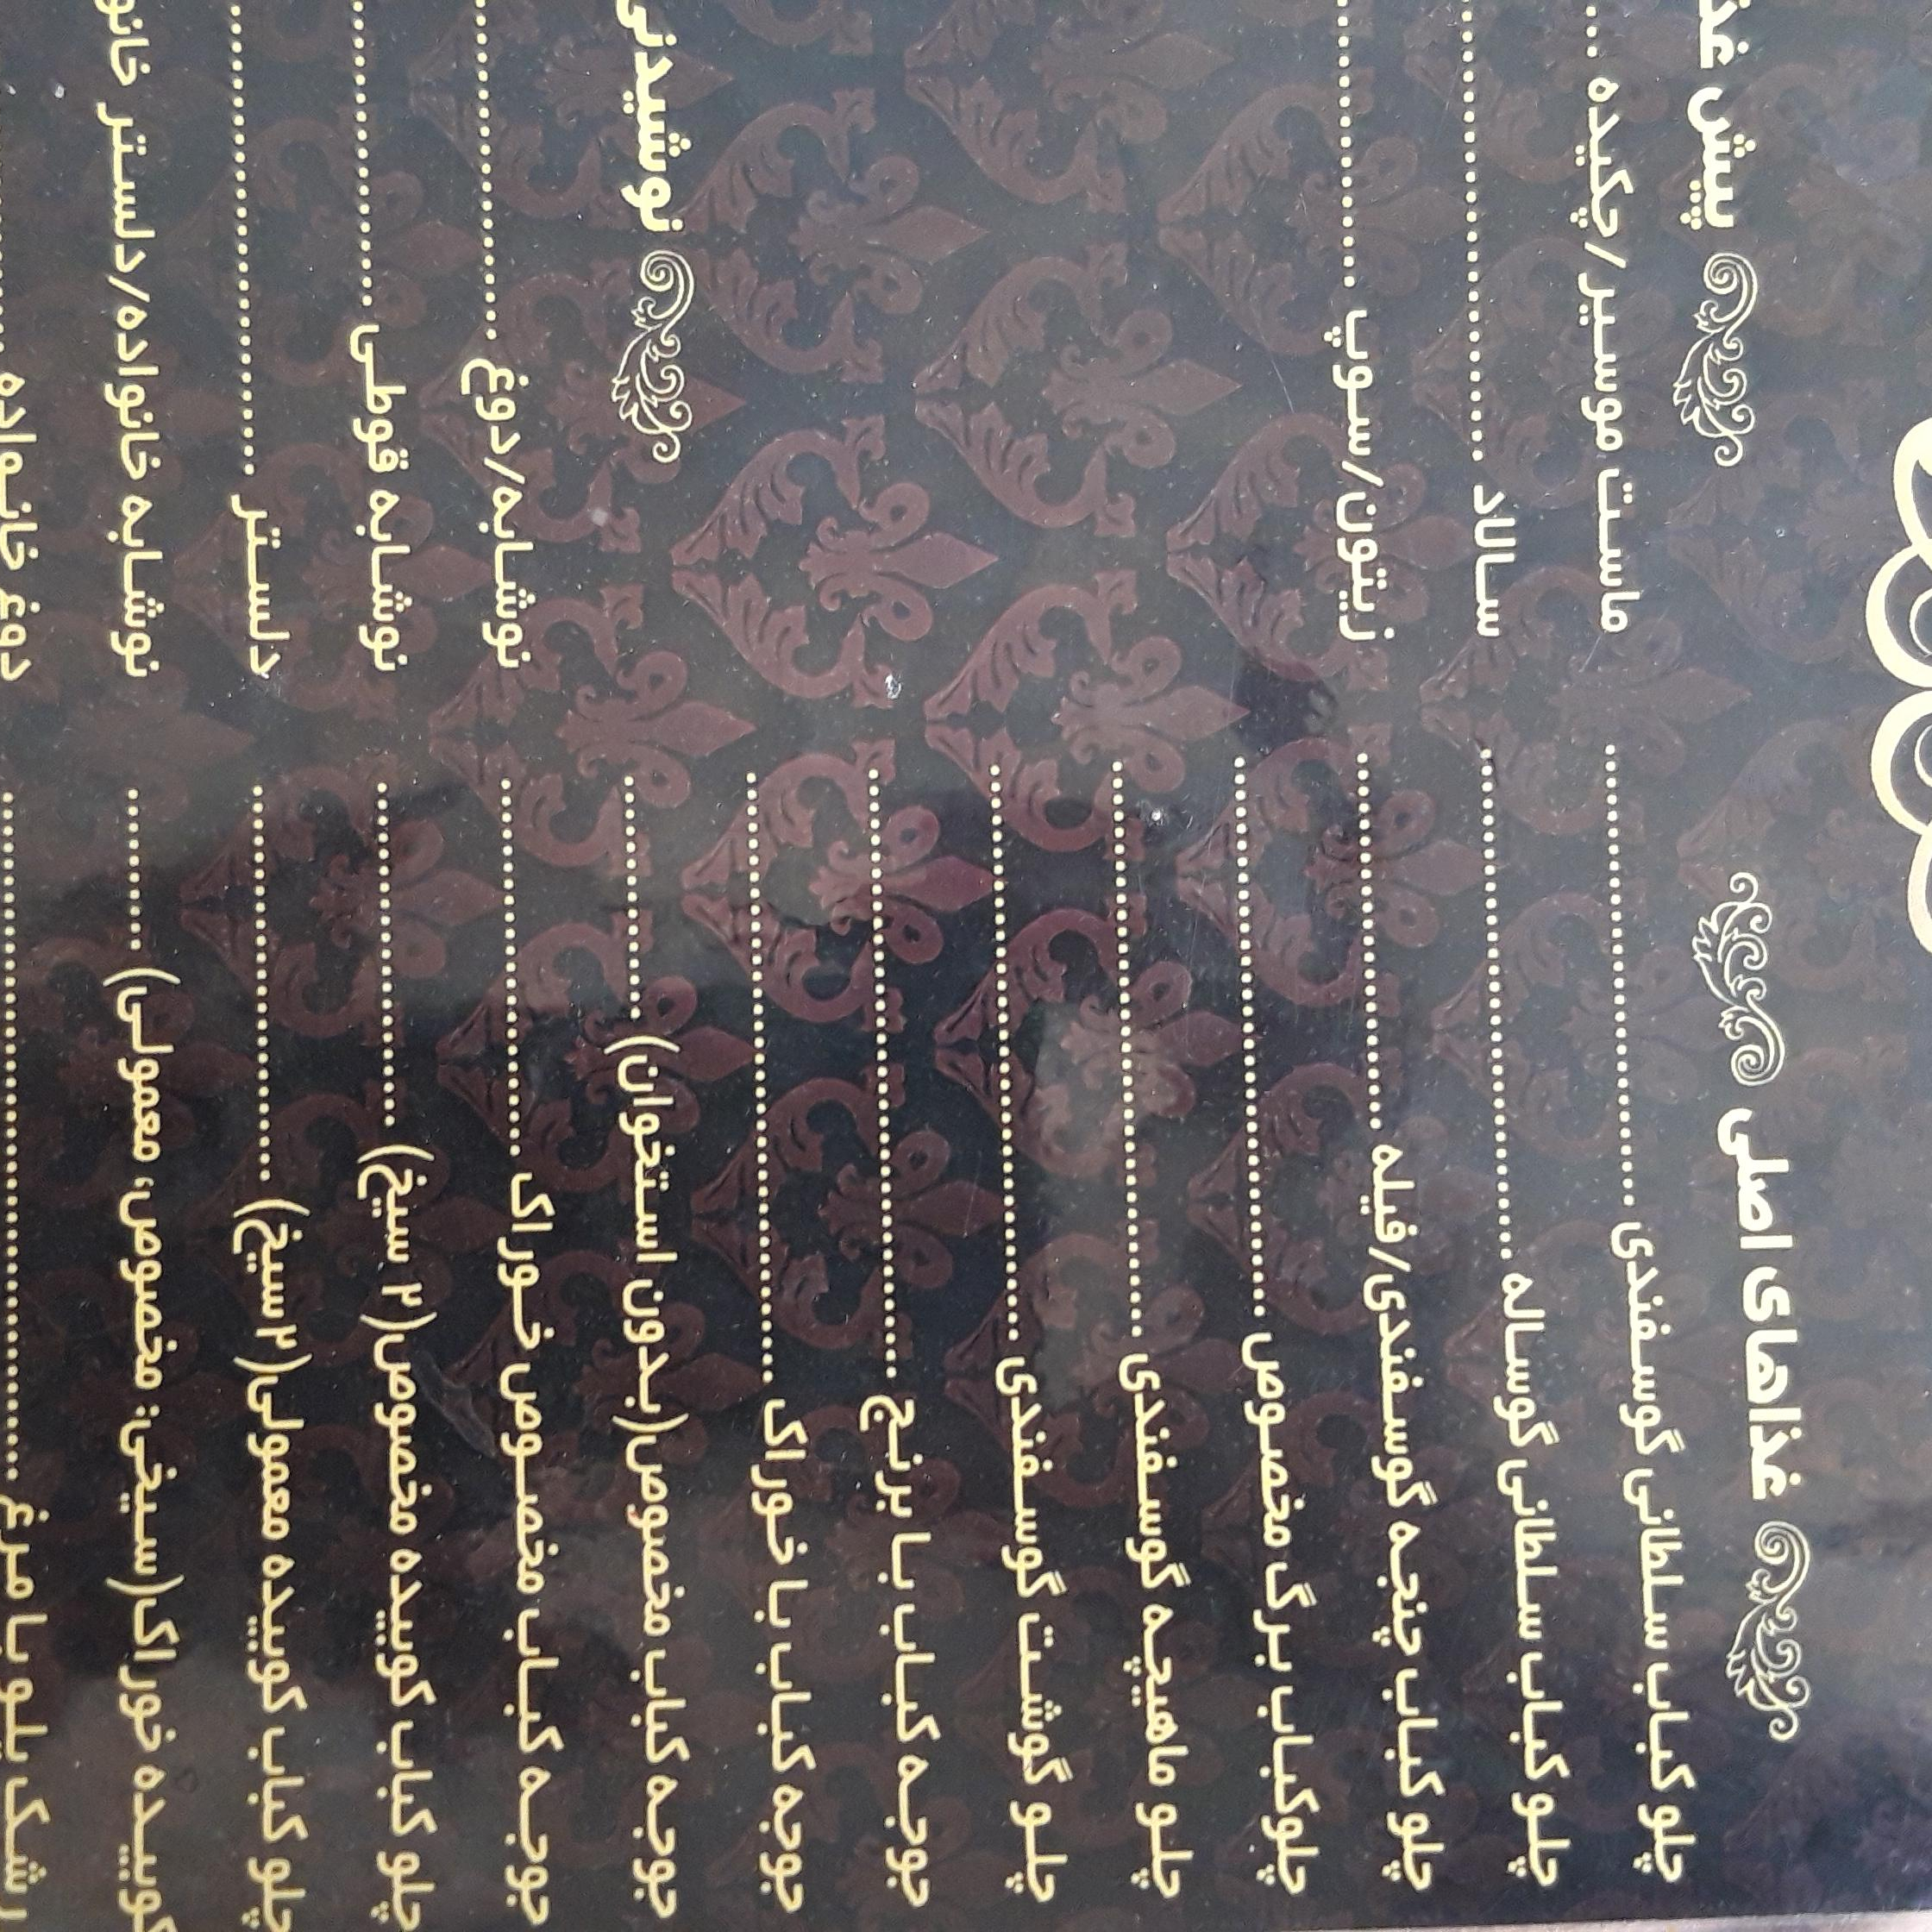 غذاهای اصلی
چلو کباب سلطانی گوسفندی
چلو کباب سلطانی گوساله
چلو کباب چنجه گوسفندی/فیله
چلوکباب برگ مخصوص
چلو ماهیچه گوسفندی
چلو گوشت گوسفندی
جوجه کباب با برنج
جوجه کباب با خوراک
جوجه کباب مخصوص(بدون استخوان)
جوجه کباب مخصوص خوراک
چلو کباب کوبیده مخصوص(۲ سیخ)
چلو کباب کوبیده معمولی(۲سیخ)
کوبیده خوراک(سیخی: مخصوص، معمولی)
پلو با مرغ
پیش
ماست موسیر/چکیده
سالاد
زیتون/سوپ
نوشیدنی
نوشابه/دوغ
نوشابه قوطی
دلستر
نوشابه خانواده/دلستر
دوغ خانواده